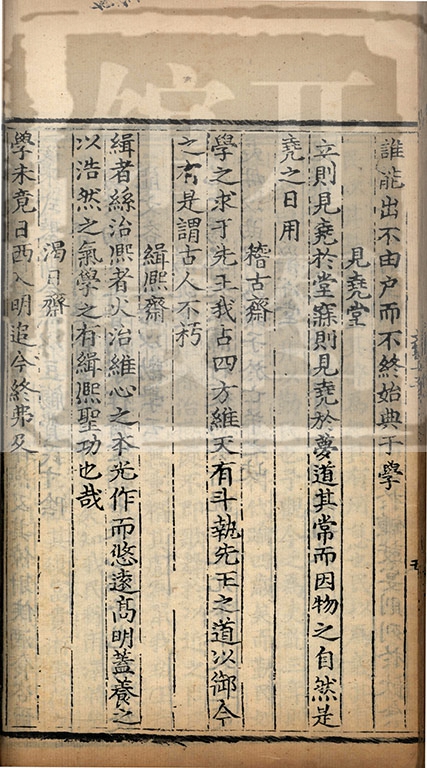 誰能出不由户而不終始典于學
見堯堂
立則見堯於堂寐則見堯於夢道其常而因物之自然是
堯之日用
稽古齋
學之求于先王我占四方維天有斗執先王之道以御今
之有是謂古人不朽
緝熈齋
緝者絲治熈者火治維心之本光作而悠遠髙明蓋養之
以浩然之氣學之有緝熈聖功也哉
渇日齋
學未竟日西入明追今終弗及